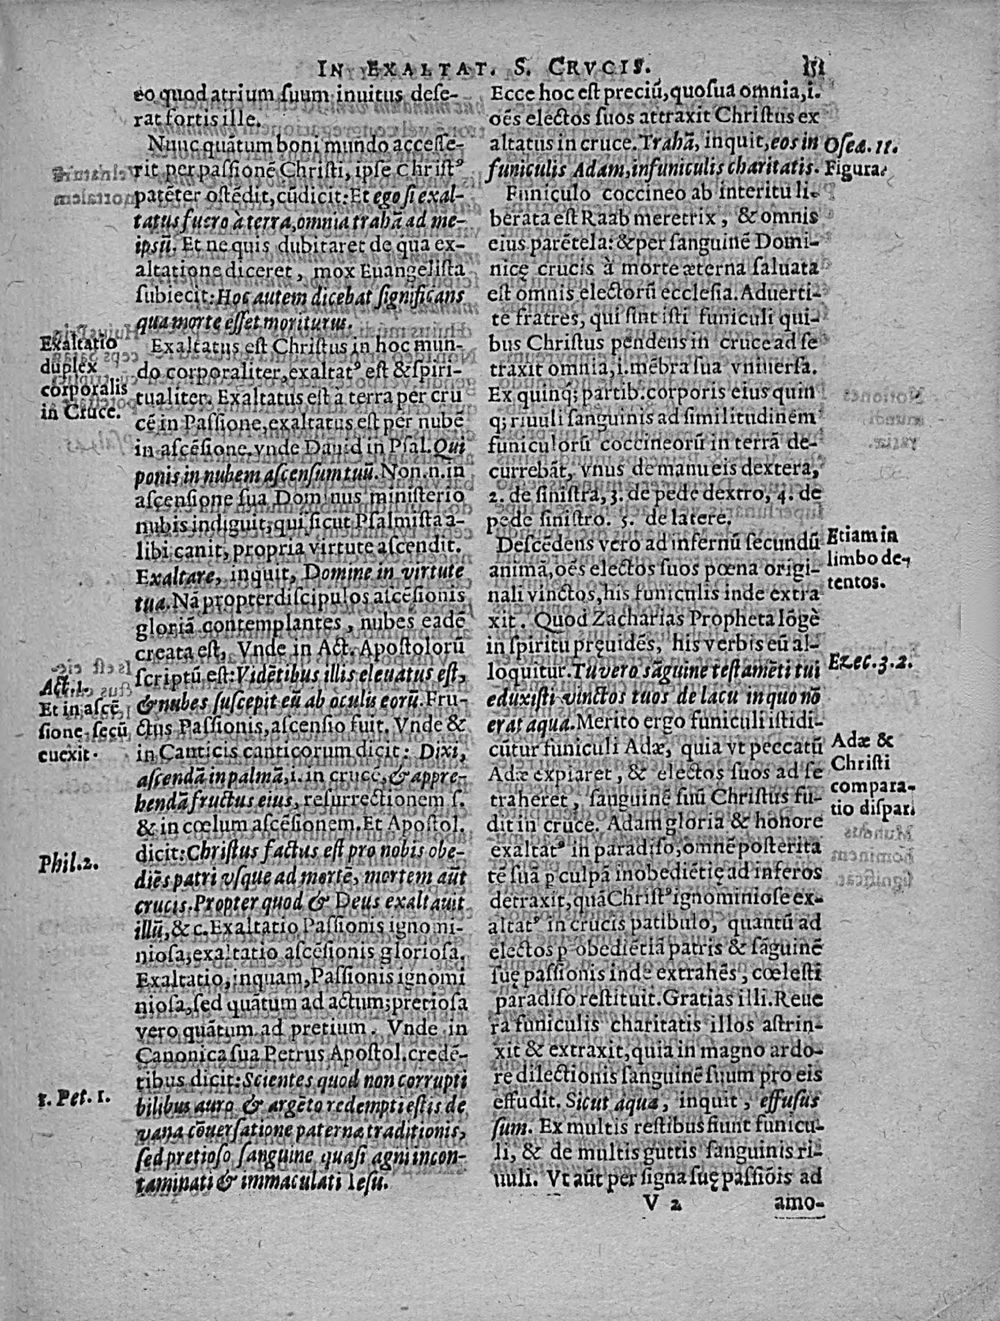 IN EXALTAT. S. CRVCIS.
eo quod atrium suum inuitus dese-
rat fortis ille.
Nunc quãtum boni mundo accesse-
rit per passionẽ Christi, ipse Christ⁹
patẽter ostẽdit, cũ dicit: Et ego si exal-
tatus fuero à terra, omnia trahã ad me-
ipsũ. Et ne quis dubitaret de qua ex-
altatione diceret, mox Euangelista
subiecit: Hoc autem dicebat significans
qua morte esset moriturus.
Exaltatus est Christus in hoc mun-
do corporaliter, exaltat⁹ est & spiri-
tualiter. Exaltatus est a terra per cru
cẽ in Passione, exaltatus est per nubẽ
in ascẽsione. vnde Dauid in Psal. Qui
ponis in nubem ascensum tuũ. Non. n. in
ascensione sua Dominus ministerio
nubis indiguit, qui sicut Psalmista a-
libi canit, propria virtute ascendit.
Exaltare, inquit, Domine in virtute
tua. Nã propter discipulos ascẽsionis
gloriã contemplantes, nubes eadẽ
creata est. Vnde in Act. Apostolorũ
scriptũ est: Vidẽtibus illis eleuatus est,
& nubes suscepit eũ ab oculis eorũ. Fru-
ctus Passionis, ascensio fuit. Vnde &
in Canticis canticorum dicit: Dixi,
ascendã in palmã, i. in cruce, & appre-
hendã fructus eius, resurrectionem s.
& in cœlum ascẽsionem. Et Apostol.
dicit: Christus factus est pro nobis obe-
diẽs patri vsque ad mortẽ, mortem aũt
crucis. Propter quod & Deus exaltauit
illũ, &c. Exaltatio Passionis ignomi-
niosa, exaltatio ascẽsionis gloriosa.
Exaltatio, inquam, Passionis ignomi
niosa, sed quãtum ad actum; pretiosa
vero quãtum ad pretium. Vnde in
Canonica sua Petrus Apostol. credẽ-
tibus dicit: Scientes quod non corrupti
bilibus auro & argẽto redempti estis de
vana cõuersatione paternæ traditionis,
sed pretioso sanguine quasi agni incon-
taminati & immaculati Iesu.
Exaltatio
duplex
corporalis
in Cruce.
Act. 1.
Et in ascẽ
sione, secũ
euexit.
Phil. 2.
1. Pet. 1.
Ecce hoc est preciũ, quo sua omnia, i.
oẽs electos suos attraxit Christus ex
altatus in cruce. Trahã, inquit, eos in
funiculis Adam, in funiculis charitatis.
Funiculo coccineo ab interitu li-
berata est Raab meretrix, & omnis
eius parẽtela: & per sanguinẽ Domi-
nicę crucis à morte æterna saluata
est omnis electorũ ecclesia. Aduerti-
te fratres, qui sint isti funiculi qui-
bus Christus pendens in cruce ad se
traxit omnia, i. mẽbra sua vniuersa.
Ex quinq; partib. corporis eius quin
q; riuuli sanguinis ad similitudinem
funiculorũ coccineorũ in terrã de-
currebãt, vnus de manu eis dextera,
2. de sinistra, 3. de pede dextro, 4. de
pede sinistro. 5. de latere.
Descẽdens vero ad infernũ secundũ
animã, oẽs electos suos pœna origi-
nali vinctos, his funiculis inde extra
xit. Quod Zacharias Propheta lõgè
in spiritu pręuidẽs, his verbis eũ al-
loquitur. Tu vero sãguine testamẽti tui
eduxisti vinctos tuos de lacu in quo nõ
erat aqua. Merito ergo funiculi isti di-
cũtur funiculi Adæ, quia vt peccatũ
Adæ expiaret, & electos suos ad se
traheret, sanguinẽ suũ Christus fu-
dit in cruce. Adam gloria & honore
exaltat⁹ in paradiso, omnẽ posterita
tẽ suã p culpã inobediẽtię ad inferos
detraxit, quã Christ⁹ ignominiose ex-
altat⁹ in crucis patibulo, quantũ ad
electos p obediẽtiã patris & sãguinẽ
suę passionis inde extrahẽs, cœlesti
paradiso restituit. Gratias illi. Reue
ra funiculis charitatis illos astrin-
xit & extraxit, quia in magno ardo-
re dilectionis sanguinẽ suum pro eis
effudit. Sicut aqua, inquit, effusus
sum. Ex multis restibus fiunt funicu-
li, & de multis guttis sanguinis ri-
uuli. Vt aũt per signa suę passiõis ad
V 2 amo-
Oseæ. 11.
Figura.
Etiam in
limbo de-
tentos.
Ezec. 3. 2.
Adæ &
Christi
compara-
tio dispar.